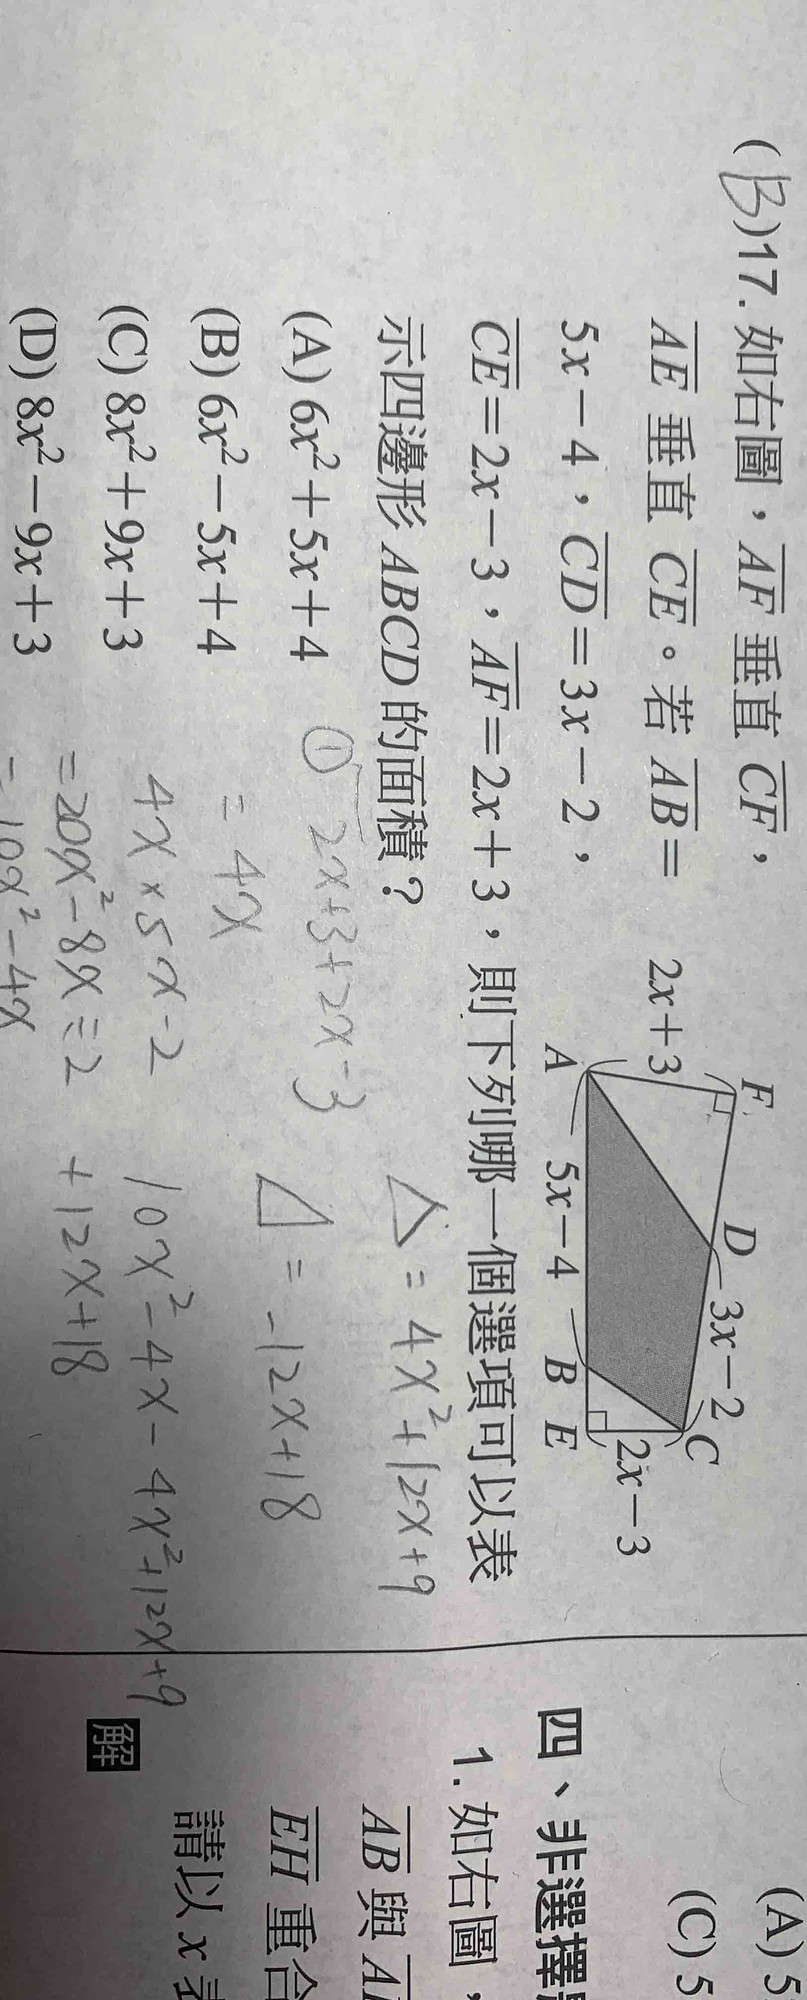 (B)17. 如右圖，AF 垂直 CF，
AE 垂直 CE。若 AB＝
5x－4，CD＝3x－2，
CE＝2x－3，AF＝2x＋3，則下列哪一個選項可以表
示四邊形 ABCD 的面積？
(A) 6x²＋5x＋4
(B) 6x²－5x＋4
(C) 8x²＋9x＋3
(D) 8x²－9x＋3
F
D
3x－2
C
2x＋3
2x－3
A
5x－4
B
E
① 2x+3+2x-3
= 4x
4x×5x-2
=20x²-8x=2
=10x²-4x
△ = 4x²+12x+9
= -12x+18
10x²-4x-4x²+12x+9
+12x+18
(A) 5
(C) 5
四、非選擇
1. 如右圖，
AB 與 A
EH 重合
請以 x 表
解